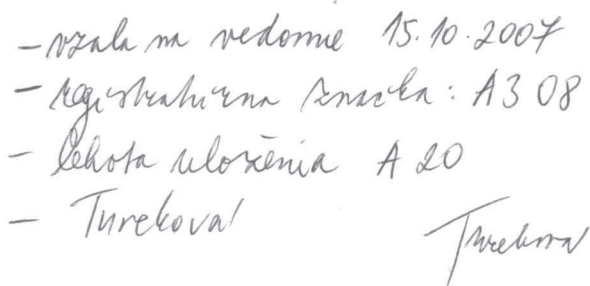 – vzala na vedomie 15.10.2007
– registratúrna značka: A3 08
– lehota uloženia A 20
– Tureková
Tureková